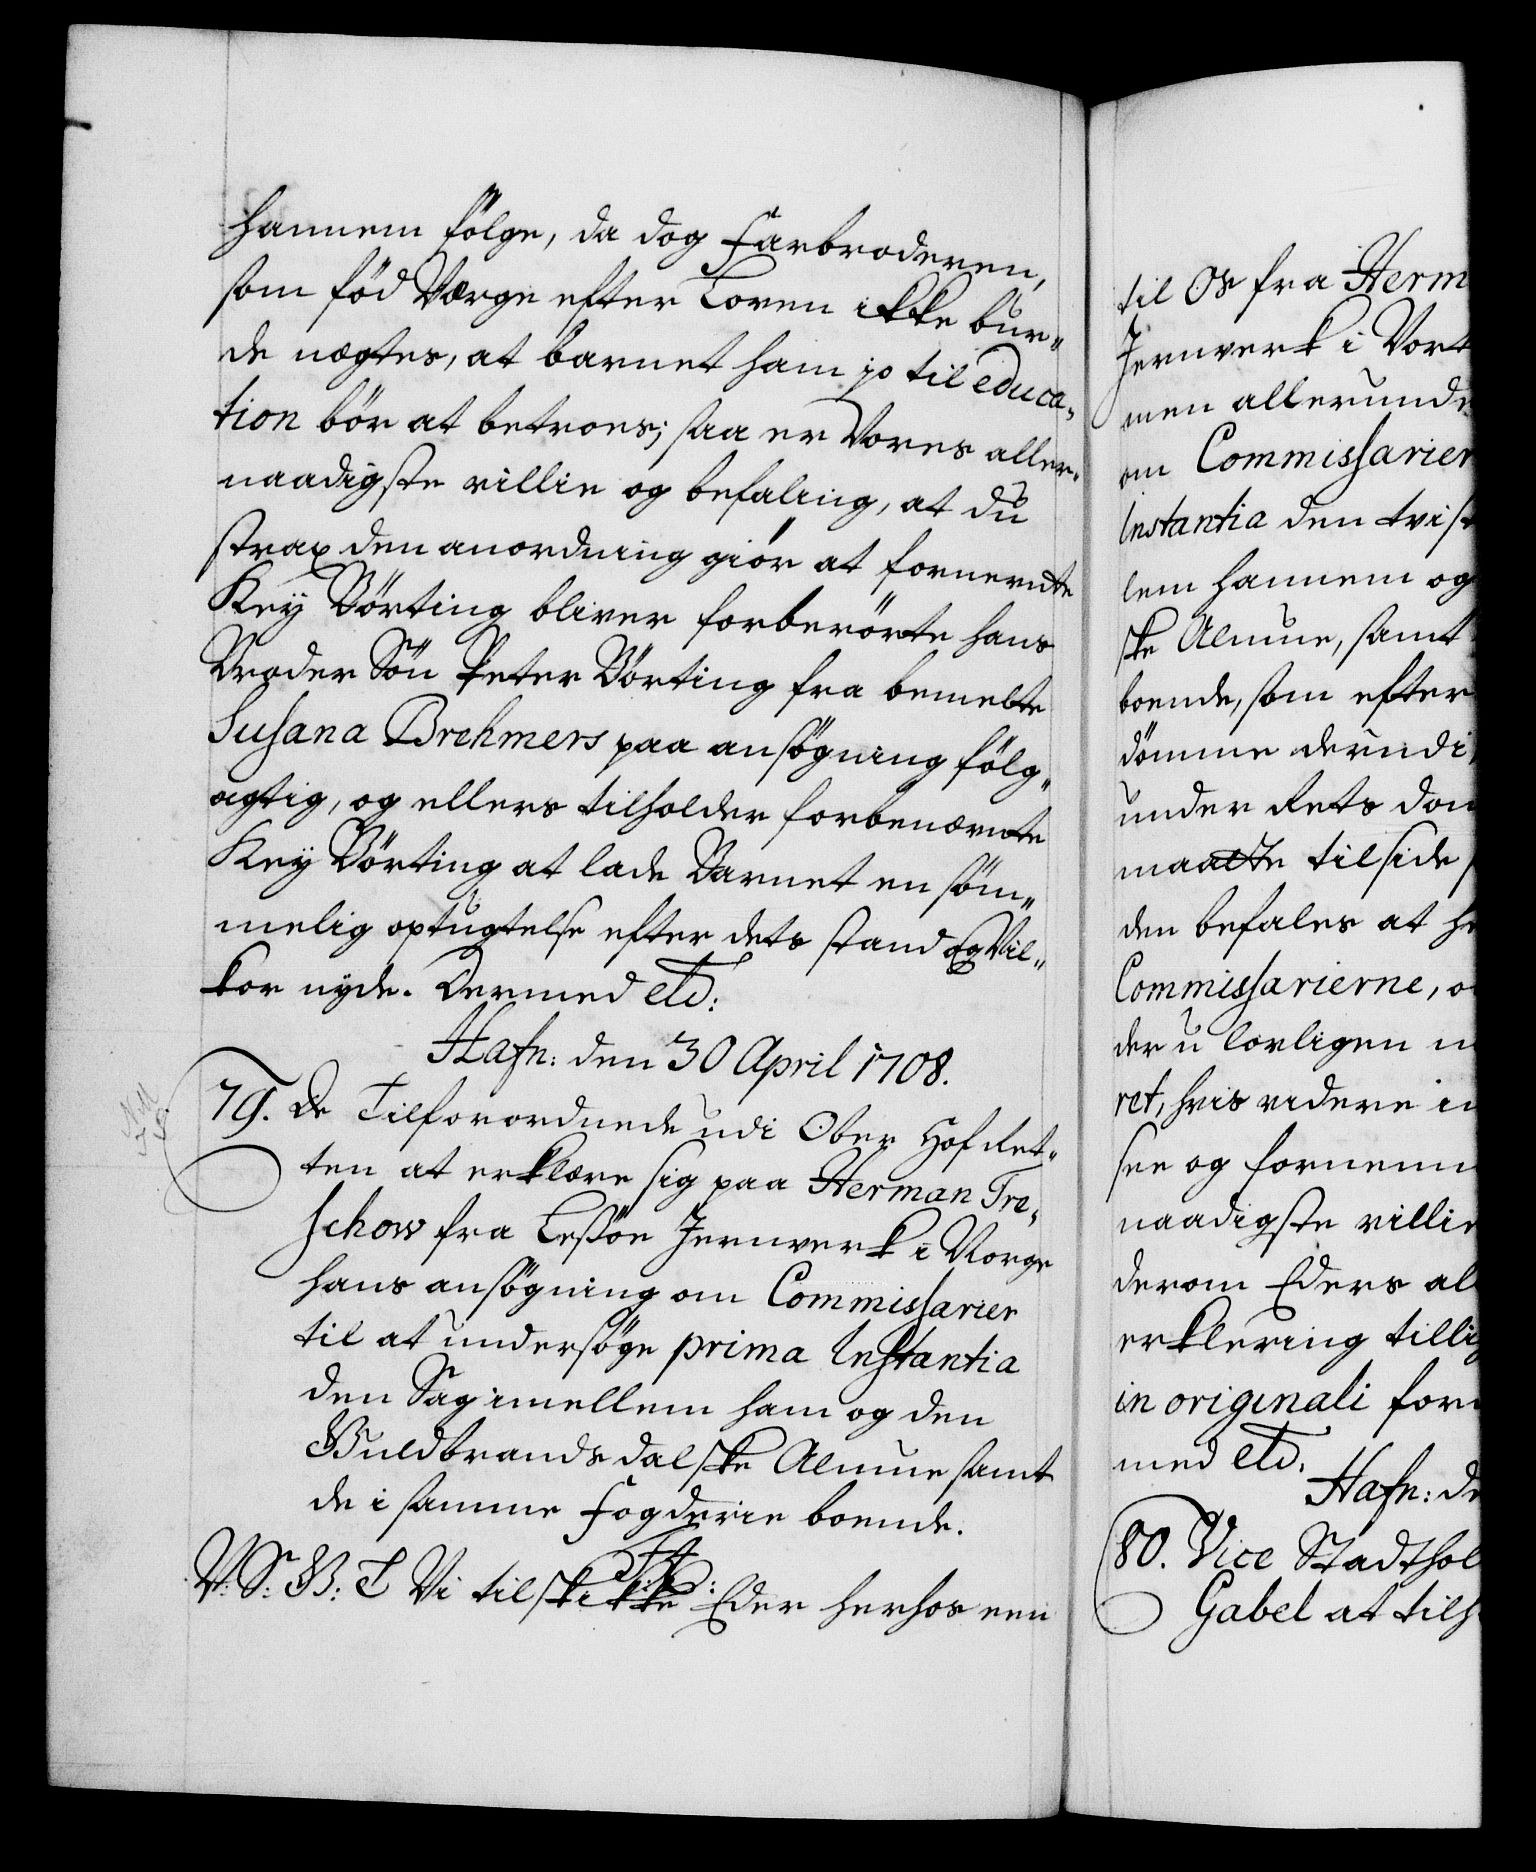 hannem følge, da dog Farbroderen,
som fød Værge efter Loven ikke bur„
de nægtes, at barnet ham jo til educa„
tion bör at betroes; saa er Vores aller„
naadigste villie og befaling, at du
strax den anordning giör at fornevnte
Key Börting bliver forberörte hans
Broder Sön Peter Börting fra bemelte
Susana Brehmers paa ansögning fölg„
agtig, og ellers tilholder forbenævnte
Key Börting at lade Barnet en söm„
melig optugtelse efter dets stand og Vil„
kor nyde. Dermed etc:
Hafn: den 30 April 1708.
79. De Tilforordnede udi Ober Hof Ret„
ten at erklære sig paa Herman Tre„
schow fra Lessöe Jernverk i Norge
hans ansögning om Commissarier
til at undersöge prima Instantia
den Sag imellem ham og den
Guldbrandsdalske Almue samt
de i samme Fogderie boende.
V: S: G: T Vi tilskikke Eder herhos een
til Os fra Herm
Jernverk i Vort
men allerunde
om Commissarier
Instantia den tvist
lem hannem og
ske Almue, samt
boende, som efter
dömme derudi
under Rets dom
maatte tilside
den befales at
Commissarierne,
der u lovligen
ret, hvis videre
see og fornem
naadigste villie
derom Eders al
erklering tillig
in originali for
med etc.
Hafn: de
80. Vice Stadthol
Gabel at tilh